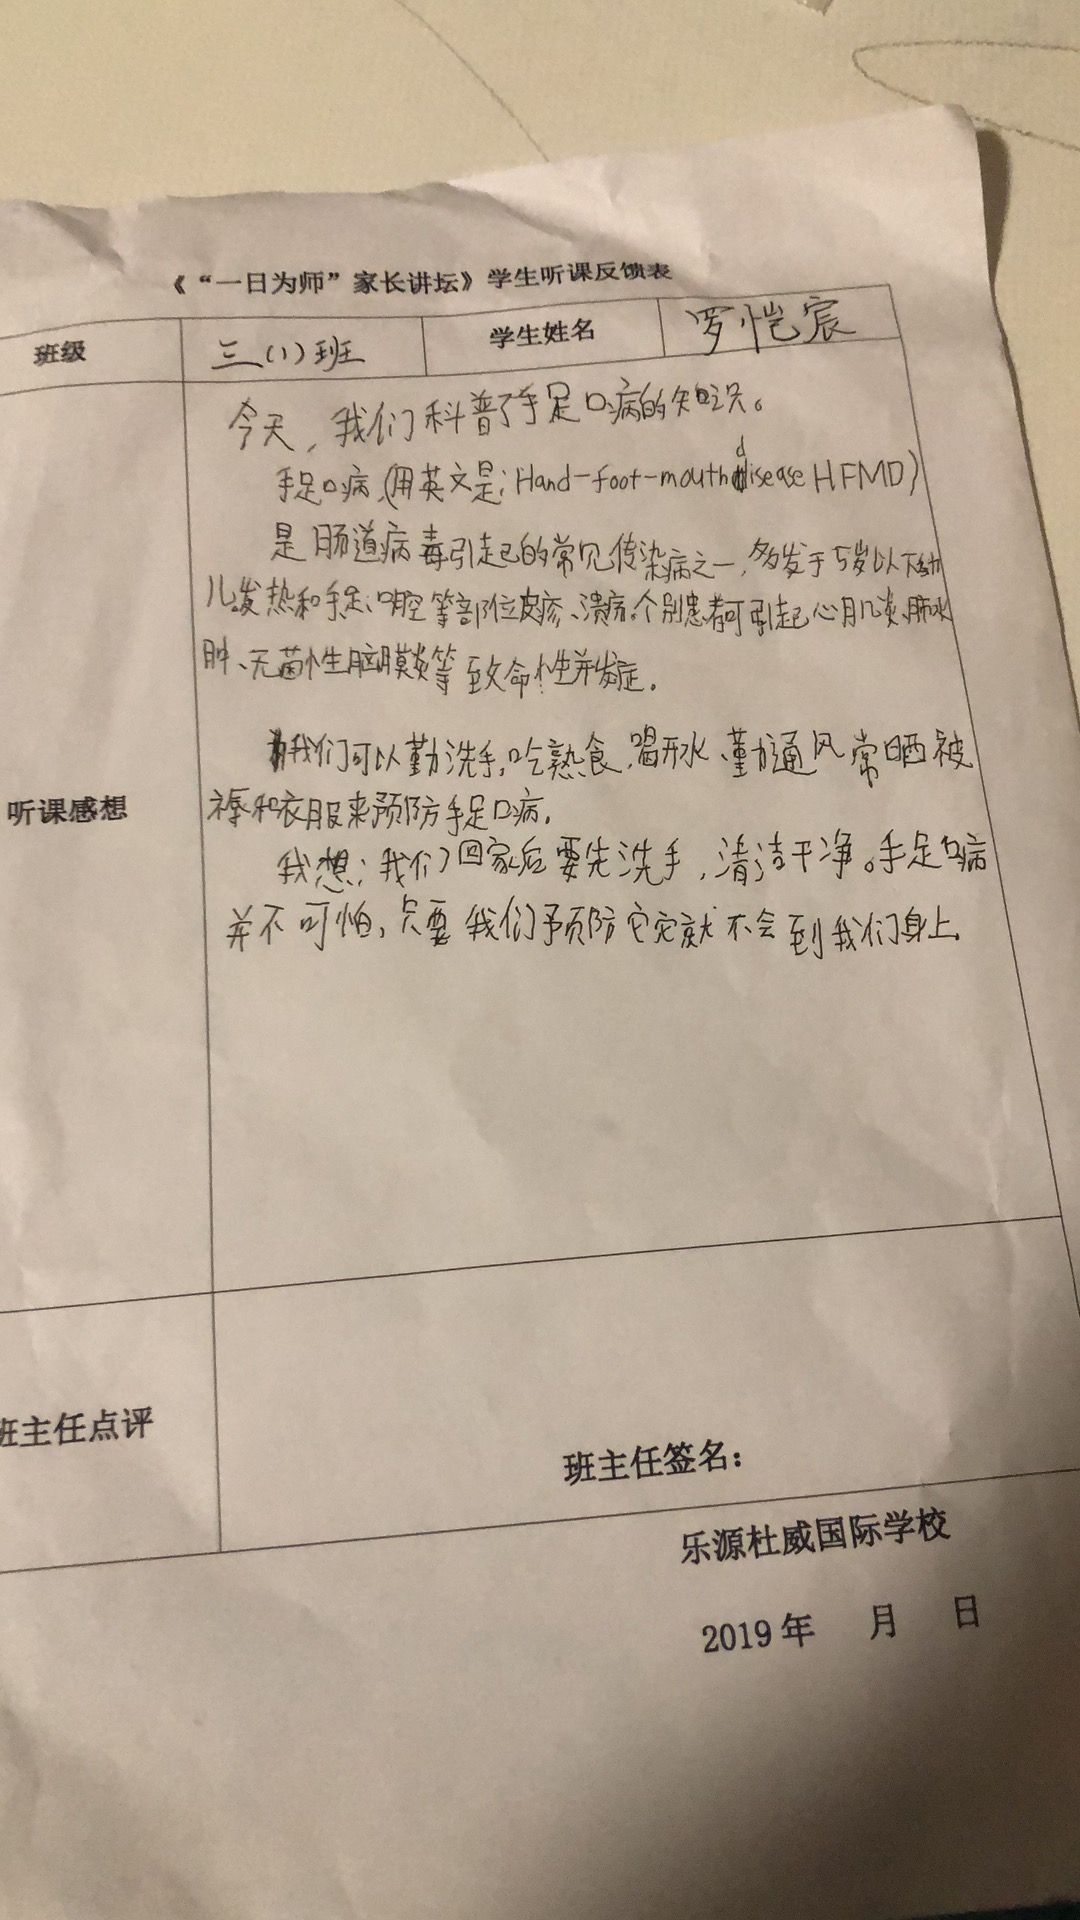 《“一日为师”家长讲坛》学生听课反馈表
班级 三(1)班 学生姓名 罗恺宸
今天,我们科普了手足口病的知识。
手足口病,(用英文是:Hand-foot-mouth disease HFMD)
是肠道病毒引起的常见传染病之一,多发于5岁以下幼
儿,发热和手足、口腔等部位皮疹、溃疡。个别患者可引起心肌炎、肺水
肿、无菌性脑膜炎等致命性并发症。
我们可以勤洗手,吃熟食,喝开水、勤通风常晒被
褥和衣服来预防手足口病。
听课感想
我想:我们回家后要先洗手,清洁干净。手足口病
并不可怕,只要我们预防它灾就不会到我们身上。
班主任点评
班主任签名:
乐源杜威国际学校
2019年 月 日